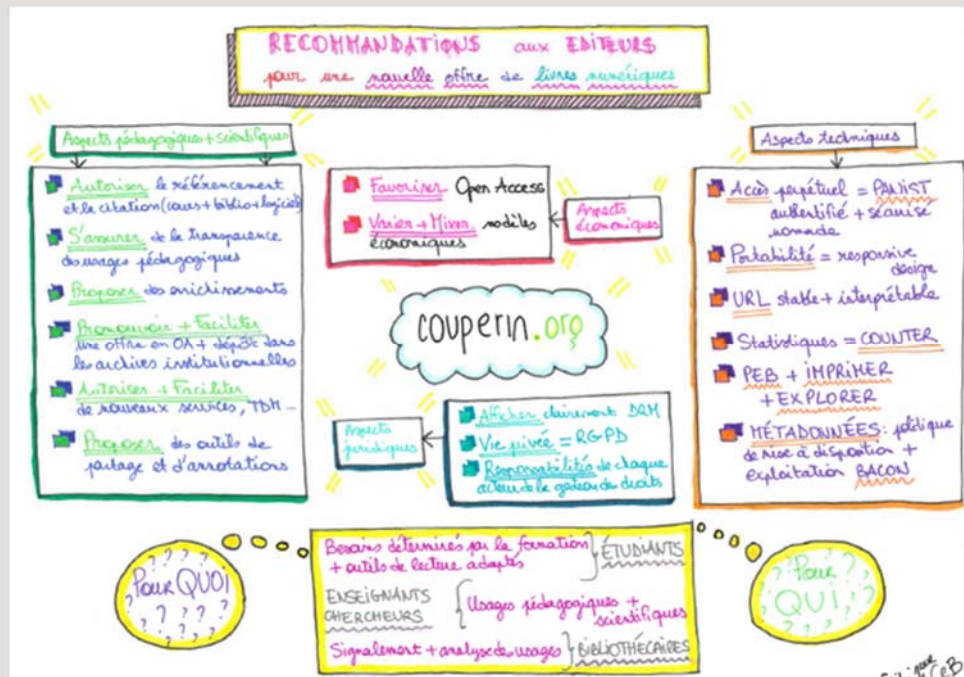 RECOMMANDATIONS aux EDITEURS
pour une nouvelle offre de livres numériques
Aspects pédagogiques + scientifiques
Autoriser le référencement
et la citation (cours + biblio + logiciels)
S'assurer de la transparence
des usages pédagogiques
Proposer des enrichissements
Promouvoir + Faciliter
une offre en OA + dépôt dans
les archives institutionnelles
Autoriser + Faciliter
de nouveaux services, TDM ...
Proposer des outils de
partage et d'annotations
Favoriser Open Access
Varier + Mixer modèles
économiques
Aspects
économiques
couperin.org
Aspects
juridiques
Afficher clairement DRM
Vie privée = RGPD
Responsabilités de chaque
acteur de la gestion des droits
Aspects techniques
Accès perpétuel = PANIST
authentifié + sécurisé
nomade
Portabilité = responsive
design
URL stable + interprétable
Statistiques = COUNTER
PEB + IMPRIMER
+ EXPLORER
MÉTADONNÉES : politique
de mise à disposition +
exploitation BACON
Pour QUOI
? ? ? ? ?
Besoins déterminés par la formation
+ outils de lecture adaptés } ÉTUDIANTS
ENSEIGNANTS
CHERCHEURS { Usages pédagogiques +
scientifiques
Signalement + analyse des usages } BIBLIOTHÉCAIRES
Pour
QUI
? ? ? ? ?